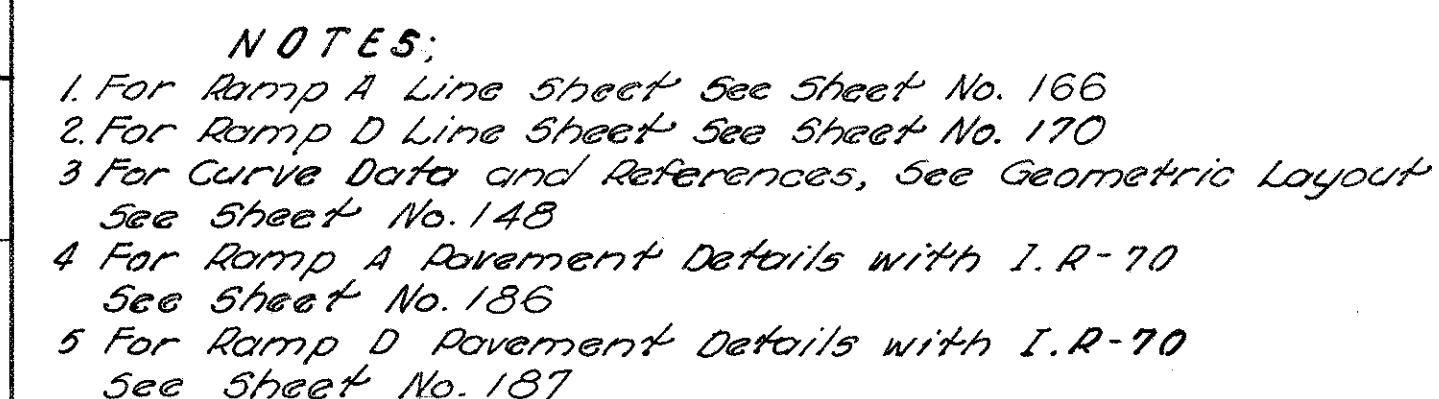 NOTES;
1. For Ramp A Line Sheet See Sheet No. 166
2. For Ramp D Line Sheet See Sheet No. 170
3 For Curve Data and References, See Geometric Layout
See Sheet No. 148
4 For Ramp A Pavement Details with I.R-70
See Sheet No. 186
5 For Ramp D Pavement Details with I.R-70
See Sheet No. 187